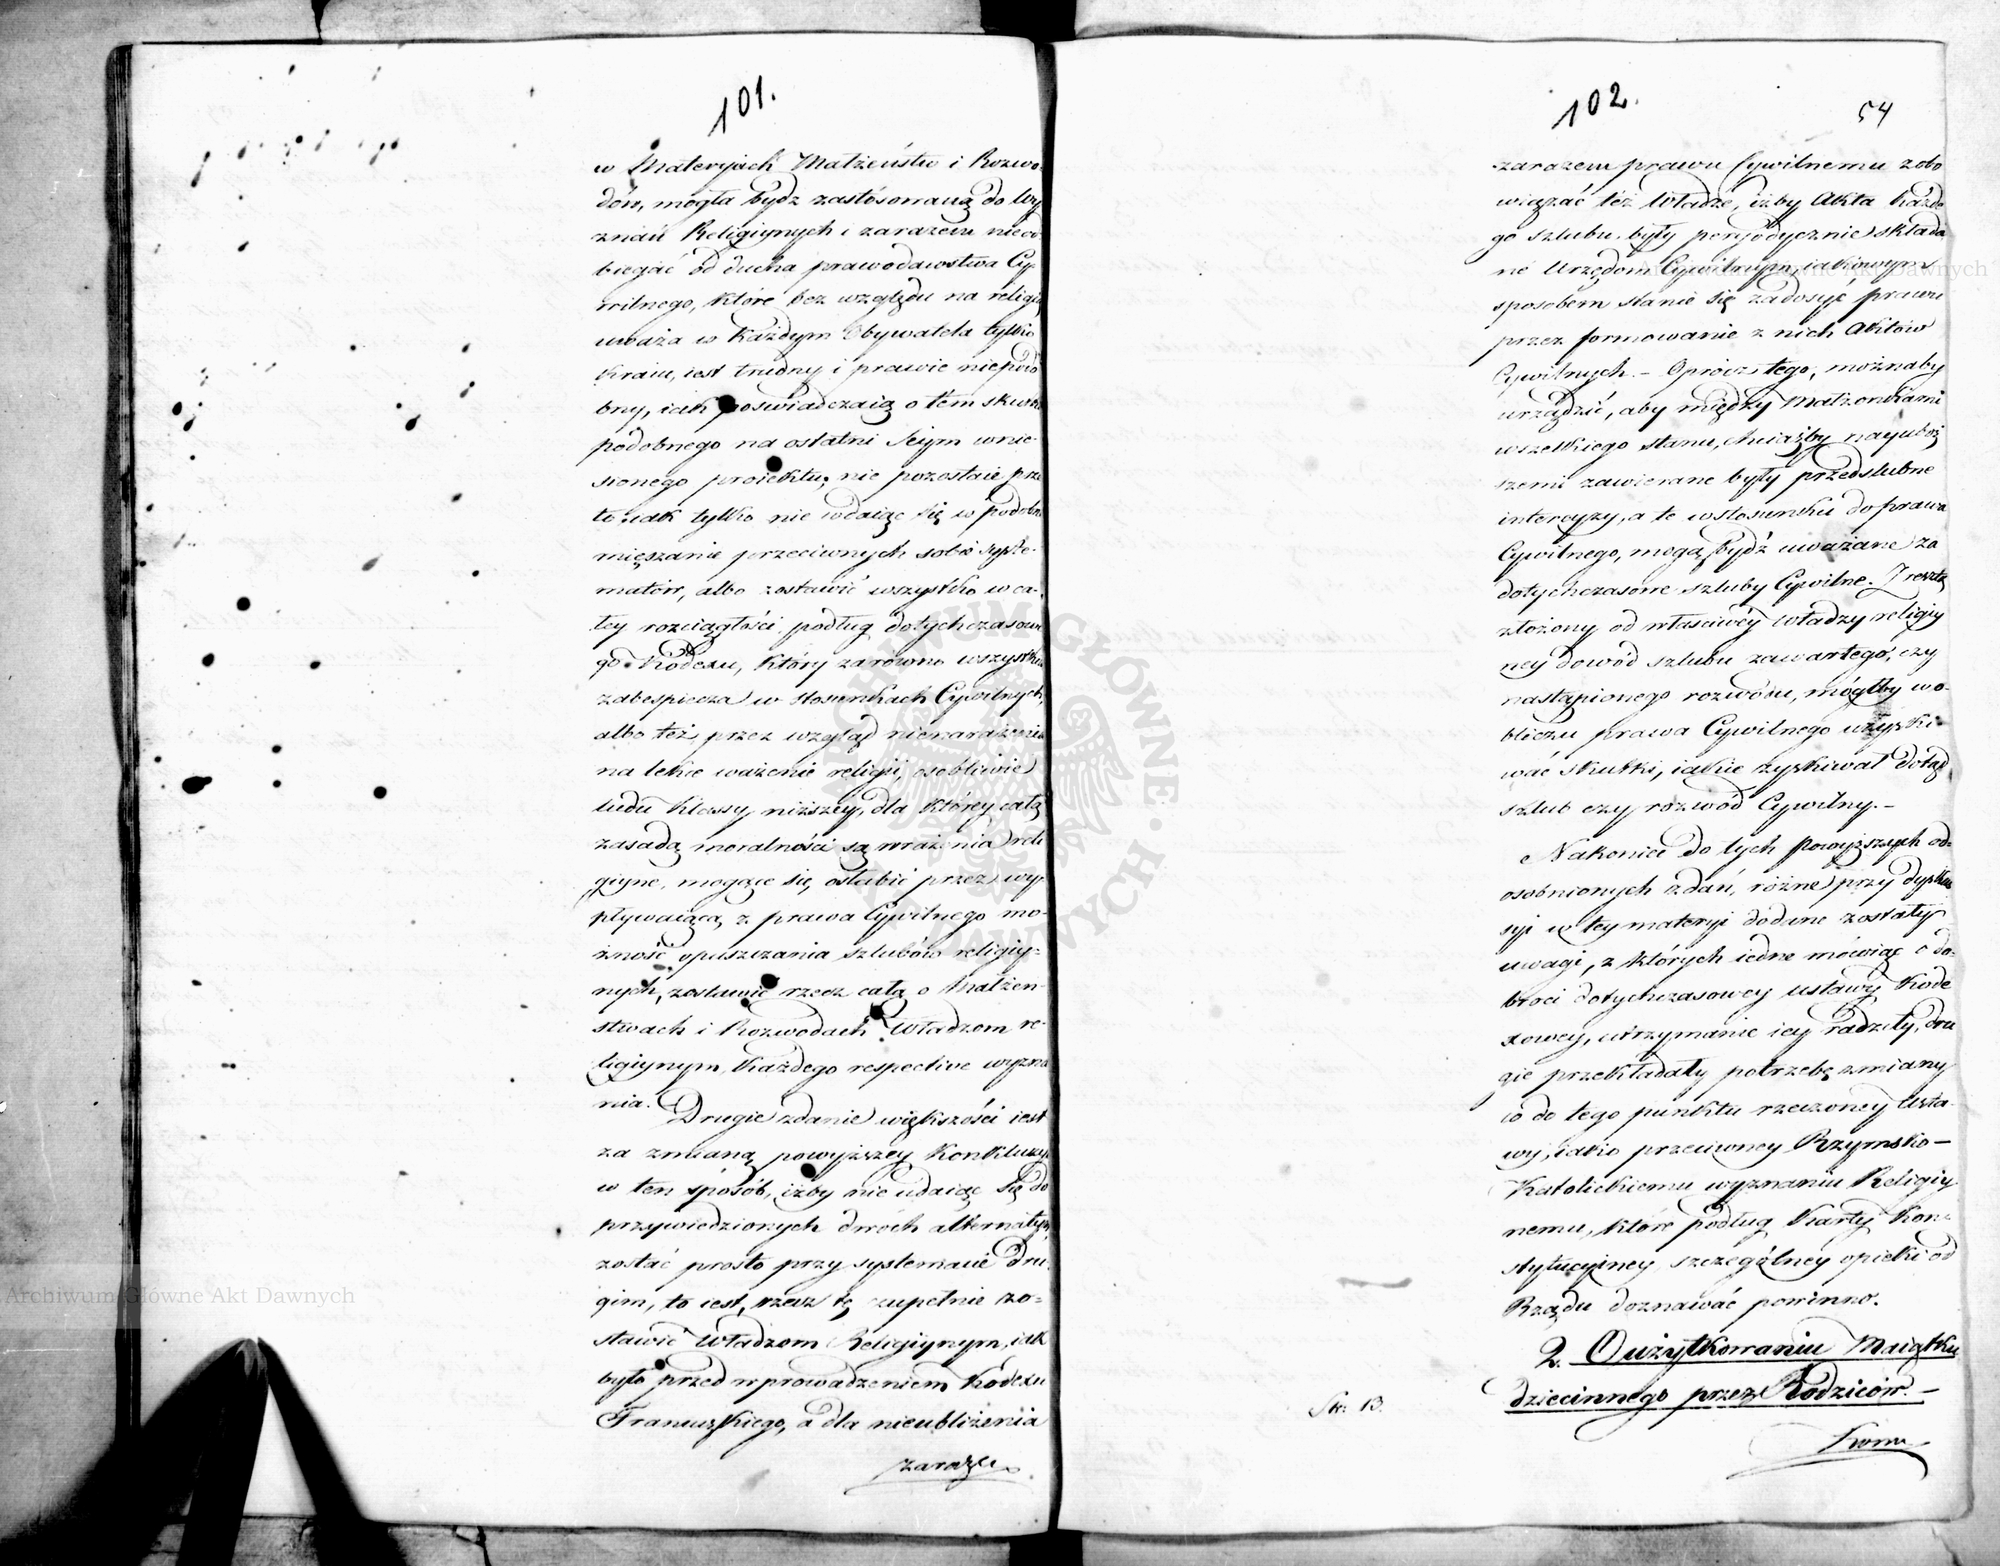 101.
w Materyach Małżeństw i Rozwo-
dów, mogła bydź zastósowaną do Wy
znań Religiynych i zarazem nieod-
biegać od ducha prawodawstwa Cy-
wilnego, które bez względu na religię
uważa w każdym Obywatela tylko
Kraiu, iest trudny i prawie niepodo
bny, iak poświadczaią o tem skutki
podobnego na ostatni Seym wnie-
sionego proiektu; nie pozostaie prze
to, iak tylko nie wdaiąc się w podobne
mięszanie przeciwnych sobie syste-
matów, albo zostawić wszystko w ca-
łey rozciągłości podług dotychczasowe
go Kodexu, który zarówno wszystkich
zabespiecza w stosunkach Cywilnych,
albo też przez wzgląd nienarażenia
na lekie ważenie religii, osobliwie
ludu Klassy niższey, dla którey całą
zasadą moralności są wrażenia reli
giyne, mogące się osłabić przez wy-
pływaiącą z prawa Cywilnego mo-
żność opuszczania szlubów religiy-
nych, zostawić rzecz całą o Małżeń-
stwach i Rozwodach Władzom re-
ligiynym każdego respective wyzna
nia.
Drugie zdanie większości iest
za zmianą powyższey Konkluzyi
w ten sposób, iżby nie udaiąc się do
przywiedzionych dwóch alternatyw,
zostać prosto przy systemacie dru-
gim, to iest, rzecz tę zupełnie zo-
stawić Władzom Religiynym, iak
było przed wprowadzeniem Kodexu
Francuzkiego, a dla nieubliżenia
zarazem
102.
54
zarazem prawu Cywilnemu zobo
wiązać też Władze, iżby Akta każde
go szlubu były peryodycznie składa
ne Urzędom Cywilnym, iakowym
sposobem stanie się zadosyć prawu
przez formowanie z nich Aktów
Cywilnych. - Oprócz tego, możnaby
urządzić, aby między Małżonkami
wszelkiego stanu, chociażby nayuboż
szemi zawierane były przedslubne
intercyzy, a te w stosunku do prawa
Cywilnego, mogą bydź uważane za
dotychczasowe szluby Cywilne. Zresztą
złożony od właściwéy władzy religiy
ney dowód szlubu zawartego, czy
nastąpionego rozwodu, mógłby w o-
bliczu prawa Cywilnego uzyski-
wać skutki, iakie zyskiwał dotąd
szlub czy rozwód Cywilny. -
Nakoniec do tych powyższych od-
osobnionych zdań, różne przy dysku
syi w tey materyi dodane zostały
uwagi, z których iedne mówiąc o do-
broci dotychczasowey ustawy Kode
xowey, utrzymanie iey radziły, dru
gie przekładały potrzebę zmiany
co do tego punktu rzeczoney Usta-
wy, iako przeciwney Rzymsko-
Katolickiemu wyznaniu Religiy
nemu, które podług Karty Kon-
stytucyiney szczególney opieki od
Rządu doznawać powinno.
2. O użytkowaniu Maiątku
dziecinnego przez Rodziców. -
Str. 13.